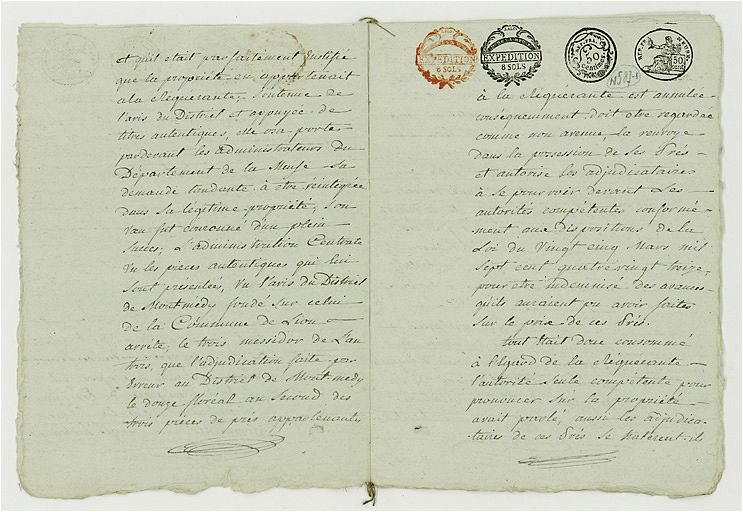 et quil etait parfaitement Justifiée
que la propriété en appartenait
a la Réquerante, Soutenue de
l'avis du District et appuyée de
titres autentiques, elle osa porter
pardevant les administrateurs du
Département de la Meuse Sa
demande tendante à être réintegrée
dans Sa légitime propriété, Son
vœu fut couronné d'un plein
Succes; L'administration Centrale
Vu les pièces autentiques qui lui
Sont présentées, Vu l'avis du District
de Montmedy fondé sur celui
de la Commune de Lion
arrête, le trois messidor de L'an
trois, que l'adjudication faite par
Erreur au District de Montmedy
le douze floréal an Second des
trois pieces de prés appartenants
EXPEDITION
6 SOLS
EXPEDITION
6 SOLS
50
50
CENT
à la Réquérante est annulée
consequemment doit etre regardée
comme non avenue, la renvoye
Dans la possession de Ses Prés
et autorise les adjudicataires
à Se pourvoir devant Les
autorités compétentes conformé-
ment aux dispositions de la
Loi du Vingt cinq Mars mil
Sept cent quatre vingt treize,
pour être indemnise des avances
qu'ils auraient pu avoir faites
Sur le prix de ces Prés.
tout était donc consommé
à l'Egard de la Réquerante
l'autorité Seule compétente pour
prononcer Sur la propriété
avait parlé, aussi les adjudica-
taires de ces Prés Se haterent-ils